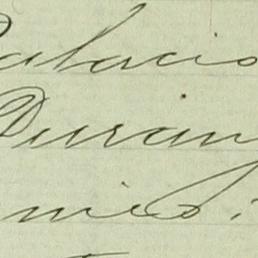 Palacio
Durang
mio: